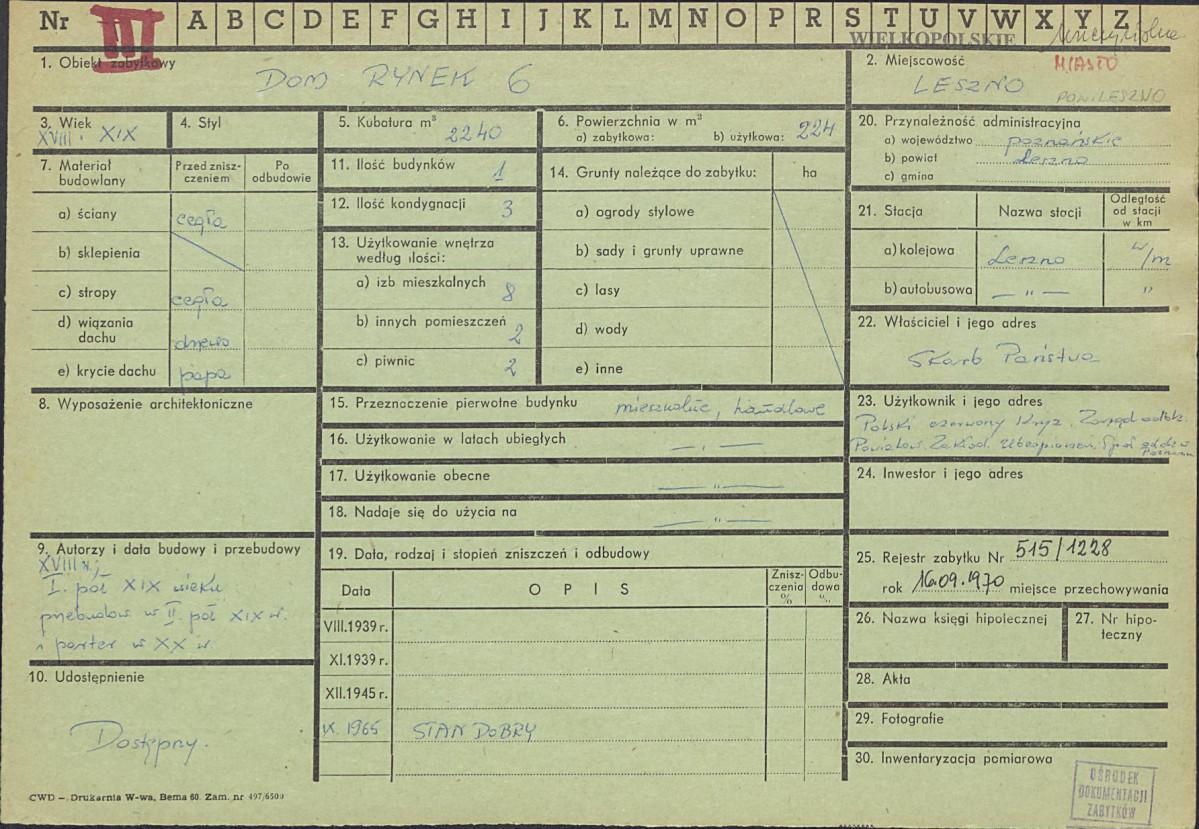 Nr III A B C D E F G H I J K L M N O P R S T U V W X Y Z
WIELKOPOLSKIE
1. Obiekt zabytkowy
DOM RYNEK 6
2. Miejscowość
MIASTO
LESZNO
POW. LESZNO
3. Wiek
XVIII. XIX
4. Styl
5. Kubatura m³
2240
6. Powierzchnia w m²
a) zabytkowa: b) użytkowa: 224
20. Przynależność administracyjna
a) województwo poznańskie
b) powiat Leszno
c) gmina
7. Materiał budowlany
Przed zniszczeniem
Po odbudowie
a) ściany cegła
b) sklepienia
c) stropy cegła
d) wiązania dachu drewno
e) krycie dachu papa
11. Ilość budynków 1
12. Ilość kondygnacji 3
13. Użytkowanie wnętrza
według ilości:
a) izb mieszkalnych 8
b) innych pomieszczeń 2
c) piwnic 2
14. Grunty należące do zabytku: ha
a) ogrody stylowe
b) sady i grunty uprawne
c) lasy
d) wody
e) inne
21. Stacja
Nazwa stacji
Odległość od stacji w km
a) kolejowa Leszno w/m
b) autobusowa — " — "
22. Właściciel i jego adres
Skarb Państwa
8. Wyposażenie architektoniczne
15. Przeznaczenie pierwotne budynku mieszkalne, handlowe
16. Użytkowanie w latach ubiegłych — " —
17. Użytkowanie obecne — " —
18. Nadaje się do użycia na — " —
23. Użytkownik i jego adres
Polski czerwony Krzyż. Zarząd
Powiatow. Zakład. Ubezpieczeń. Społ. oddz. w
Poznaniu
24. Inwestor i jego adres
9. Autorzy i data budowy i przebudowy
XVIII w;
I. poł XIX wieku
przebudow. w II. poł XIX w.
i parter w XX w.
19. Data, rodzaj i stopień zniszczeń i odbudowy
Data
OPIS
Zniszczenia %
Odbudowa %
VIII.1939 r.
XI.1939 r.
XII.1945 r.
IX. 1965 STAN DOBRY
25. Rejestr zabytku Nr 515/1228
rok 16.09.1970 miejsce przechowywania
26. Nazwa księgi hipotecznej
27. Nr hipoteczny
10. Udostępnienie
Dostępny.
28. Akta
29. Fotografie
30. Inwentaryzacja pomiarowa
OŚRODEK
DOKUMENTACJI
ZABYTKÓW
CWD — Drukarnia W-wa, Bema 60. Zam. nr 497/6500